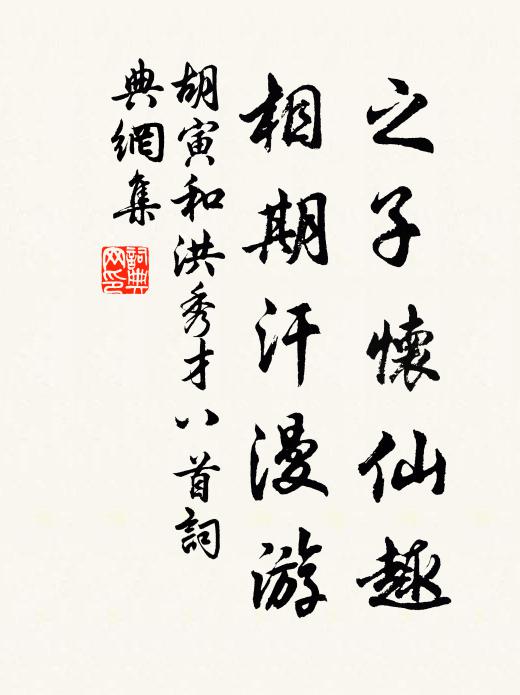 之子懷仙趣
相期汗漫游
胡寅和洪秀才八首詞
典網集
詞典
網印